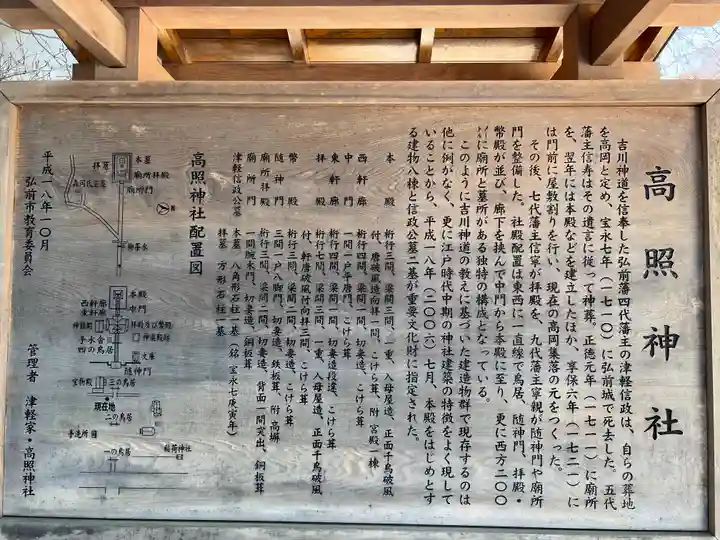 高照神社
吉川神道を信奉した弘前藩四代藩主の津軽信政は、自らの葬地
を高岡と定め、宝永七年（一七一〇）に弘前城で死去した。五代
藩主信寿はその遺言に従って神葬。正徳元年（一七一一）に廟所
を、翌年には本殿などを建立したほか、享保六年（一七二一）に
は門前に屋敷割りを行い、現在の高岡集落の元をつくった。
その後、七代藩主信寧が拝殿を、九代藩主寧親が随神門や廟所
門を整備した。社殿配置は東西に一直線で鳥居、随神門、拝殿・
幣殿が並び、廊下を挟んで中門から本殿に至り、更に西方二〇〇
㍍に廟所と墓所がある独特の構成となっている。
このように吉川神道の教えに基づいた建造物群で現存するのは
他に例がなく、更に江戸時代中期の神社建築の特徴をよく現して
いることから、平成一八年（二〇〇六）七月、本殿をはじめとす
る建物八棟と信政公墓二基が重要文化財に指定された。
本殿 桁行三間、梁間三間、一重、入母屋造、正面千鳥破風
付、唐破風造向拝一間、こけら葺、附 宮殿一棟
西軒廊 桁行四間、梁間一間、切妻造、こけら葺
中門 一間一戸平唐門、こけら葺
東軒廊 桁行四間、梁間一間、切妻造段違、こけら葺
拝殿 桁行七間、梁間三間、一重、入母屋造、正面千鳥破風
付、軒唐破風付向拝三間、こけら葺
幣殿 桁行三間、梁間二間、切妻造、こけら葺
随神門 三間一戸八脚門、切妻造、鉄板葺、附 高塀
廟所拝殿 桁行三間、梁間二間、切妻造、背面一間突出、銅板葺
廟所門 一間腕木門、切妻造、銅板葺
津軽信政公墓 本墓 八角形石柱一基（銘 宝永七庚寅年）
拝墓 方形石柱一基
高照神社配置図
本墓
拝墓
廟所拝殿
廟所門
御茶水
本殿
中門
西軒廊
東軒廊
拝殿及び幣殿
神饌殿
手水舎
四の鳥居
文庫
随神門
宝物殿
三の鳥居
現在地
二の鳥居
手洗所
一の鳥居
稲荷神社
平成一八年一〇月
弘前市教育委員会
管理者 津軽家・高照神社